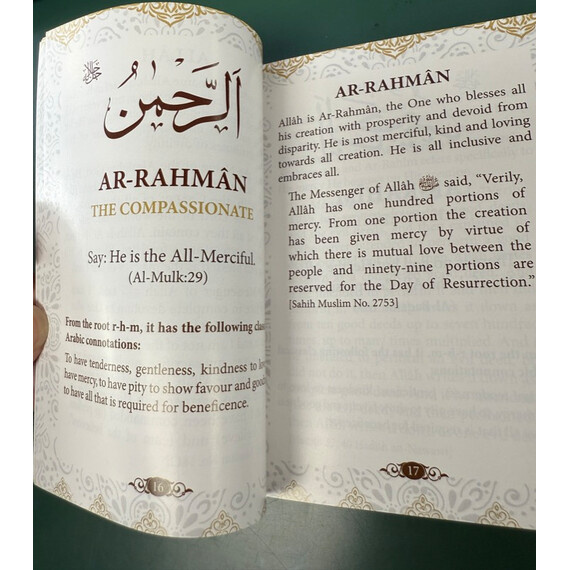 الرَّحْمٰنُ
AR-RAHMÂN
THE COMPASSIONATE
Say: He is the All-Merciful.
(Al-Mulk:29)
From the root r-h-m, it has the following
Arabic connotations:
To have tenderness, gentleness, kindness to
have mercy, to have pity to show favour and
to have all that is required for beneficence.
16
AR-RAHMÂN
Allâh is Ar-Rahmân, the One who blesses all
his creation with prosperity and devoid from
disparity. He is most merciful, kind and loving
towards all creation. He is all inclusive and
embraces all.
The Messenger of Allâh ﷺ said, “Verily,
Allâh has one hundred portions of
mercy. From one portion the creation
has been given mercy by virtue of
which there is mutual love between the
people and ninety-nine portions are
reserved for the Day of Resurrection.”
[Sahih Muslim No. 2753]
17